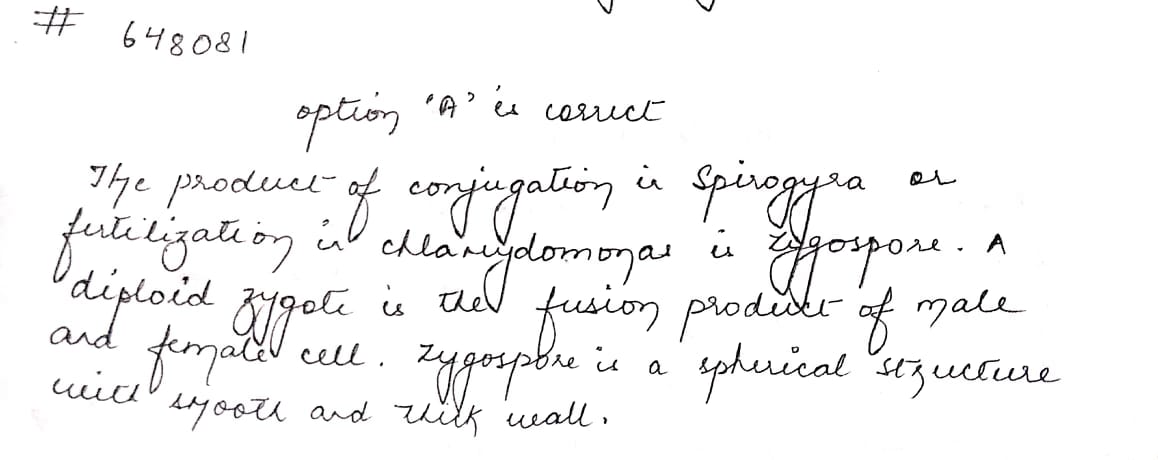 # 648081
option 'A' is correct
The product of conjugation in Spirogyra or
fertilization in chlamydomonas is Zygospore. A
diploid zygote is the fusion product of male
and female cell. Zygospore is a spherical structure
with smooth and thick wall.